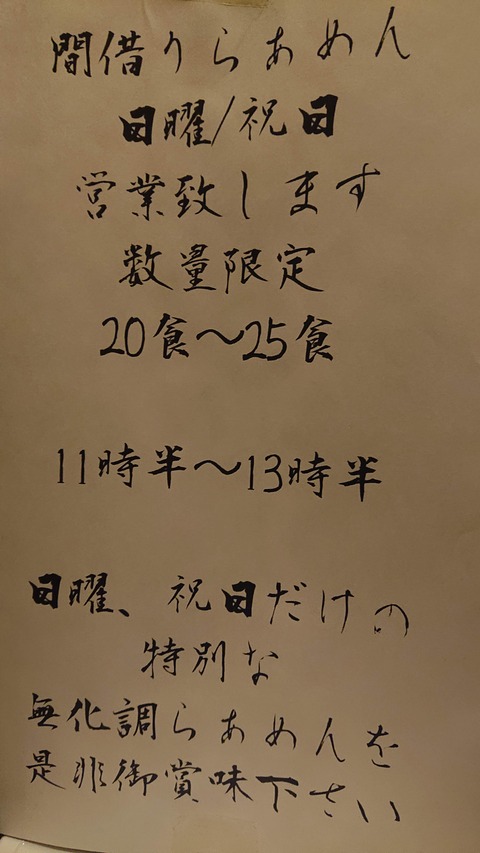 間借りらあめん
日曜/祝日
営業致します
数量限定
20食〜25食
11時半〜13時半
日曜、祝日だけの
特別な
無化調らあめんを
是非御賞味下さい